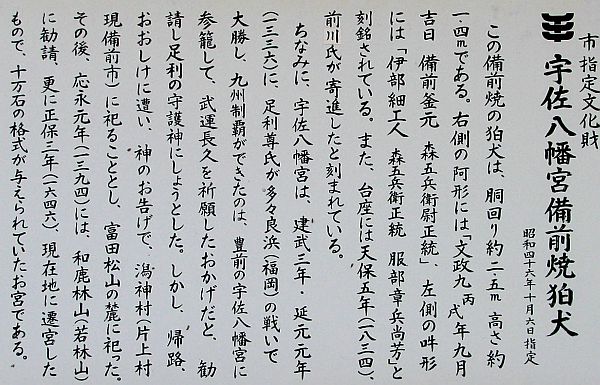 市指定文化財
宇佐八幡宮備前焼狛犬
昭和四十六年十月六日指定
この備前焼の狛犬は、胴回り約二・五m高さ約
一・四mである。右側の阿形には「文政九丙戌年九月
吉日 備前釜元 森五兵衛尉正統」、左側の吽形
には「伊部細工人 森五兵衛正統 服部章兵尚芳」と
刻銘されている。また、台座には天保五年(一八三四)
前川氏が寄進したと刻まれている。
ちなみに、宇佐八幡宮は、建武三年・延元元年
(一三三六)に、足利尊氏が多々良浜(福岡)の戦いで
大勝し、九州制覇ができたのは、豊前の宇佐八幡宮に
参籠して、武運長久を祈願したおかげだと、勧
請し足利の守護神にしようとした。しかし、帰路、
おおしけに遭い、神のお告げで、潟神村(片上村
現備前市)に祀ることとし、富田松山の麓に祀った。
その後、応永元年(一三九四)には、和鹿林山(若林山)
に勧請、更に正保三年(一六四六)、現在地に遷宮した
もので、十万石の格式が与えられていたお宮である。